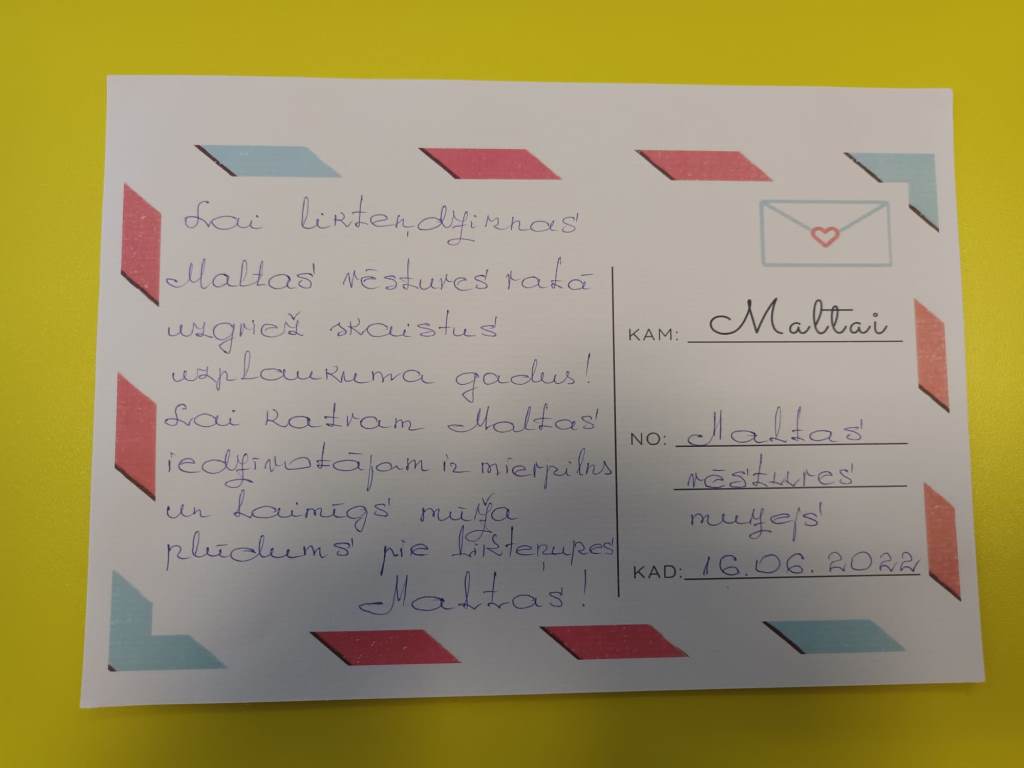 Lai likteņdzirnas
Maltas vēstures ratā
uzgriež skaistus
uzplaukuma gadus!
Lai katram Maltas
iedzīvotājam ir mierpilns
un laimīgs mūža
plūdums pie likteņupes
Maltas!
KAM: Maltai
NO: Maltas
vēstures
muzejs
KAD: 16.06.2022